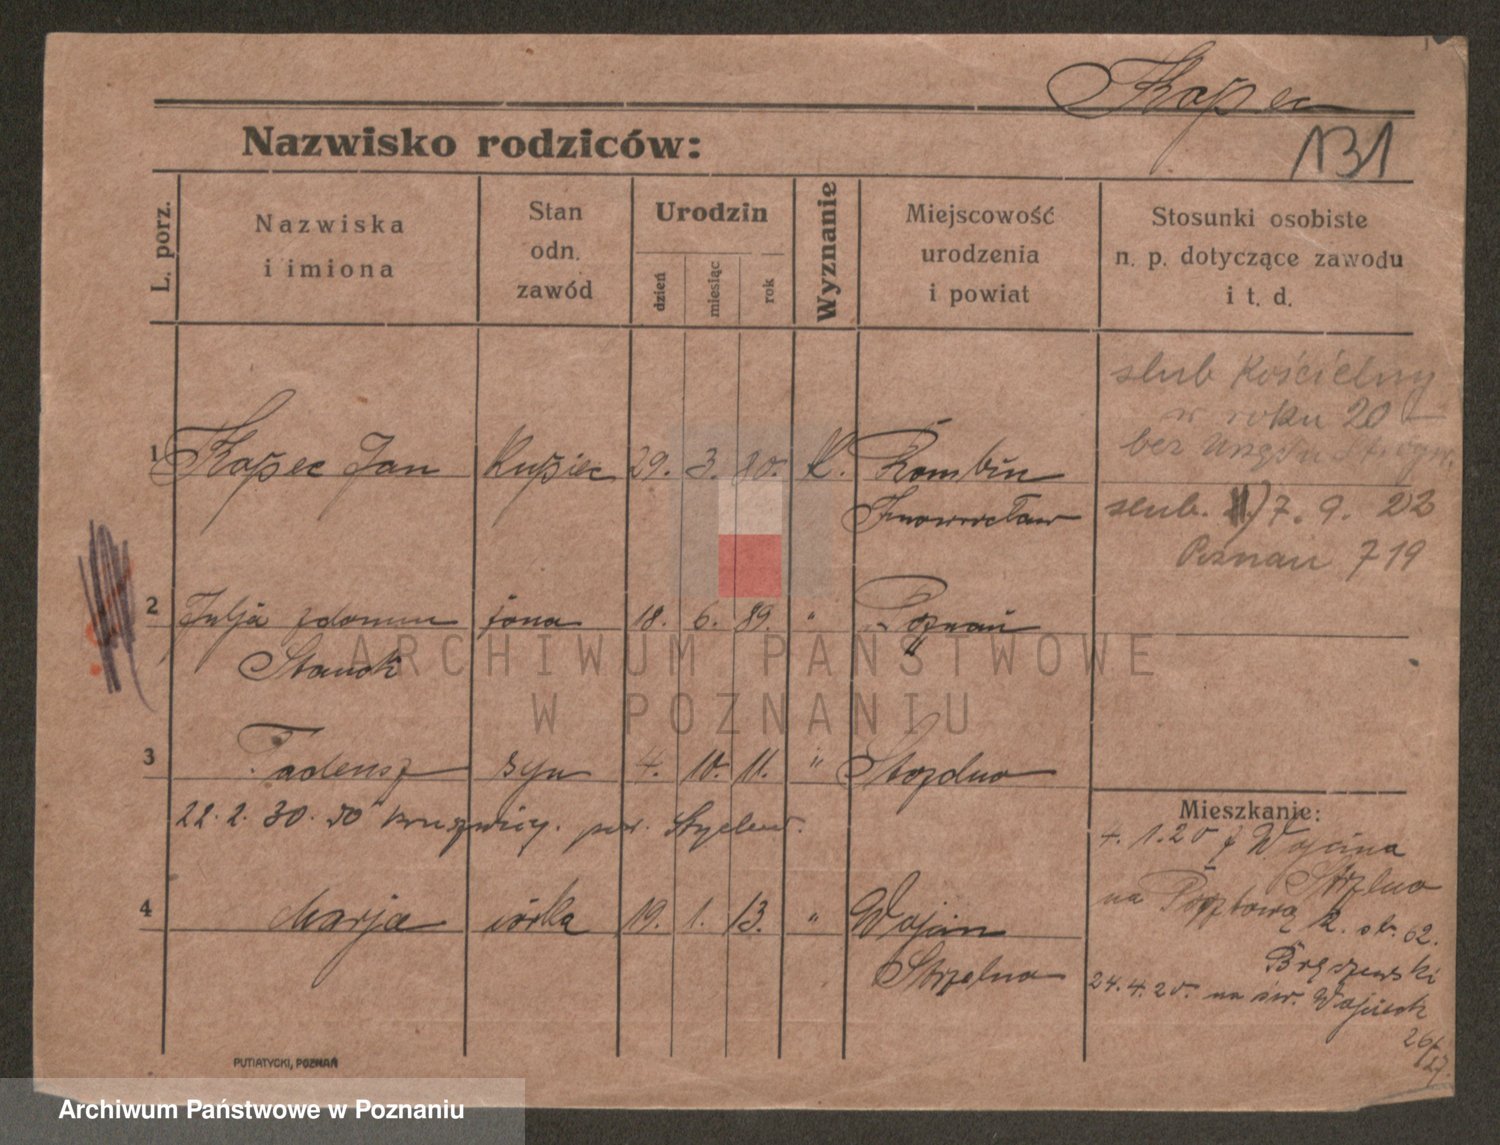 Kapec
131
Nazwisko rodziców:
L. porz.
Nazwiska
i imiona
Stan
odn.
zawód
Urodzin
dzień
miesiąc
rok
Wyznanie
Miejscowość
urodzenia
i powiat
Stosunki osobiste
n. p. dotyczące zawodu
i t. d.
slub Kościelny
w roku 20
bez
1 Kapec Jan kupiec 29. 3. 80. K. Rombin
Inowrocław
slub. 7. 9. 22
Poznań 719
2 Julja z domu żona 18. 6. 89. " Poznań
Stanek "
3 Tadeusz syn 4. 10. 11. " Strzelno
22. 2. 30. do Kruszwicy. pow.
Mieszkanie:
4. 1. 20 z Wojcina
Strzelno
na Pocztową 12. 62.
24. 4. 20. na św. Wojciech
26/27.
4 Marja córka 19. 1. 13. " Wojcin
Strzelno
PUTIATYCKI, POZNAŃ
ARCHIWUM PAŃSTWOWE
W POZNANIU
Archiwum Państwowe w Poznaniu